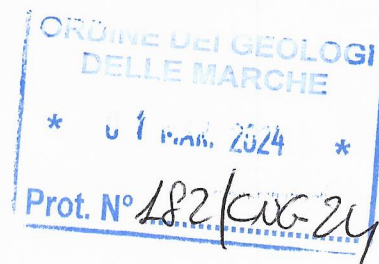 ORDINE DEI GEOLOGI
DELLE MARCHE
* 01 MAR. 2024 *
Prot. N° 182/CNG-24